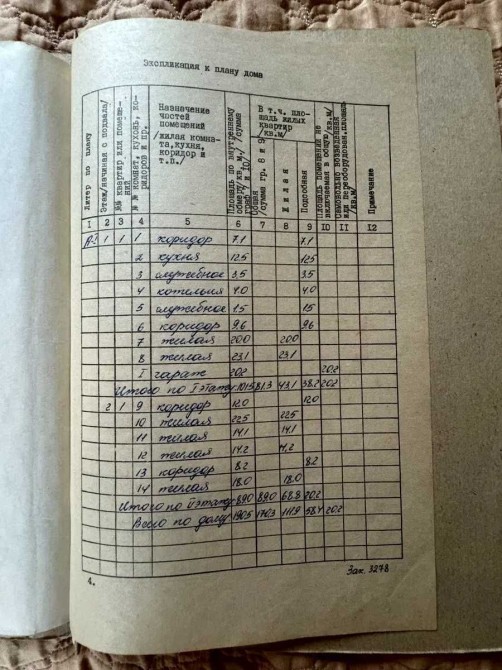 Экспликация к плану дома
Литер по плану
Этаж/начиная с подвала/
№№ квартир или помеще-
ний
№ № комнат, кухонь, ко-
ридоров и пр.
Назначение
частей
помещений
/жилая комна-
та,кухня,
коридор и
т.п./
Площадь по внутреннему
обмеру/кв.м./ /сумма
граф 7 и 10/
В т.ч. пло-
щадь жилых
квартир
/кв.м/
Общая
/сумма гр. 8 и 9/
Жилая
Подсобная
Площадь помещений не
включаемая в общую/кв.м/
Самовольно возведенная
или переоборудован.площадь
/кв.м/
Примечание
1 2 3 4 5 6 7 8 9 10 11 12
А-2 1 1 1 коридор 7.1 7.1
2 кухня 12.5 12.5
3 служебное 3.5 3.5
4 котельня 4.0 4.0
5 служебное 1.5 1.5
6 коридор 9.6 9.6
7 жилая 20.0 20.0
8 жилая 23.1 23.1
I гараж 20.2 20.2
Итого по I этажу 101.5 81.3 43.1 38.2 20.2
2 1 9 коридор 12.0 12.0
10 жилая 22.5 22.5
11 жилая 14.1 14.1
12 жилая 14.2 14.2
13 коридор 8.2 8.2
14 жилая 18.0 18.0
Итого по II этажу 89.0 89.0 68.8 20.2
Всего по дому 190.5 170.3 111.9 58.4 20.2
4.
Зак. 3278